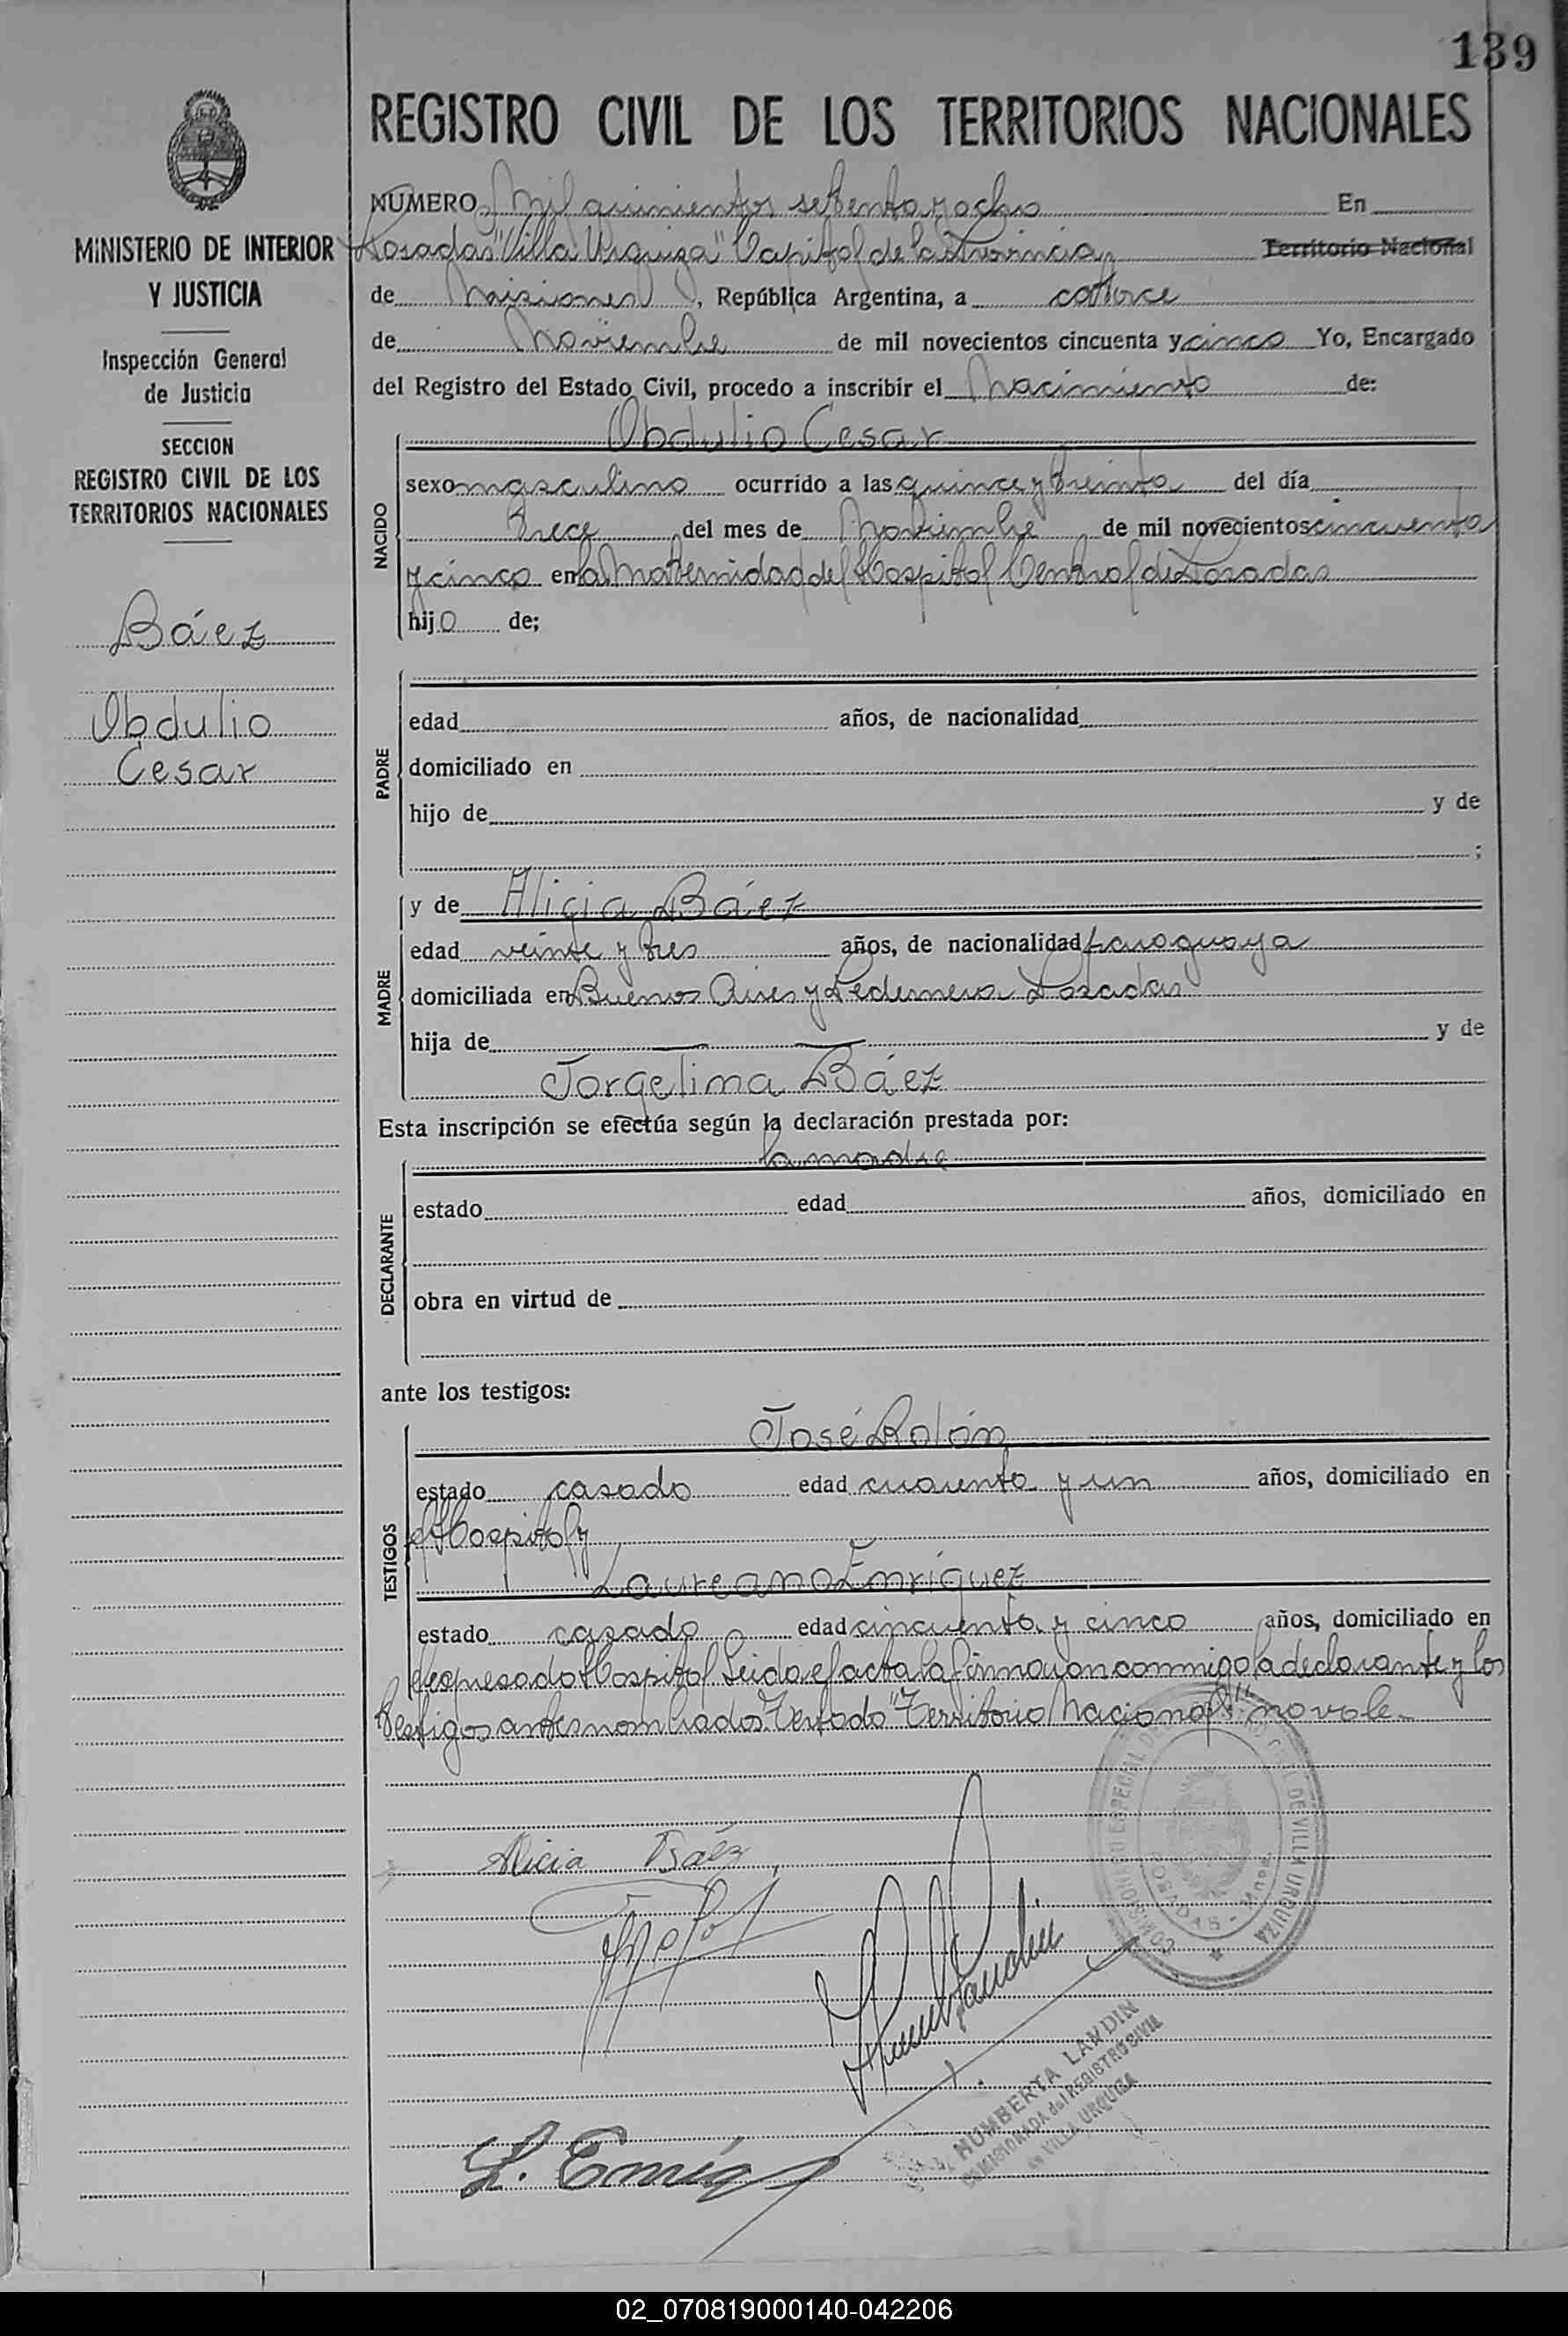 139
REGISTRO CIVIL DE LOS TERRITORIOS NACIONALES
MINISTERIO DE INTERIOR
Y JUSTICIA
Inspección General
de Justicia
SECCION
REGISTRO CIVIL DE LOS
TERRITORIOS NACIONALES
Báez
Obdulio
Cesar
NUMERO Mil quinientos setenta y ocho En
Posadas "Villa Urquiza" Capital de la Provincia Territorio Nacional
de Misiones, República Argentina, a catorce
de Noviembre de mil novecientos cincuenta y cinco Yo, Encargado
del Registro del Estado Civil, procedo a inscribir el Nacimiento de:
NACIDO
Obdulio Cesar
sexo masculino ocurrido a las quince y treinta del día
trece del mes de Noviembre de mil novecientos cincuenta
y cinco en la Maternidad del Hospital Central de Posadas
hijo de;
PADRE
edad años, de nacionalidad
domiciliado en
hijo de y de
;
MADRE
y de Alicia Báez
edad veinte y tres años, de nacionalidad paraguaya
domiciliada en Buenos Aires y Pedernera Posadas
hija de y de
Jorgelina Báez
Esta inscripción se efectúa según la declaración prestada por:
DECLARANTE
la madre
estado edad años, domiciliado en
obra en virtud de
ante los testigos:
TESTIGOS
José Rolón
estado casado edad cuarenta y un años, domiciliado en
el Hospital y
Laureano Enriquez
estado casado edad cincuenta y cinco años, domiciliado en
el expresado Hospital Leida el acta la firmaron conmigo la declarante y los
testigos antes nombrados Testado "Territorio Nacional" no vale.
Alicia Báez
L. Enriq
COMISIONADO ESPECIAL DEL CIVIL DE VILLA URQUIZA
POSADAS - Mnes.
HUMBERTA LANDIN
COMISIONADA del REGISTRO CIVIL
de VILLA URQUIZA
02_070819000140-042206